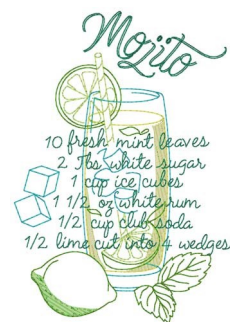 Mojito
10 fresh mint leaves
2 Tbs white sugar
cup ice cubes
1 1/2 oz white rum
1/2 cup club soda
1/2 lime cut into 4 wedges